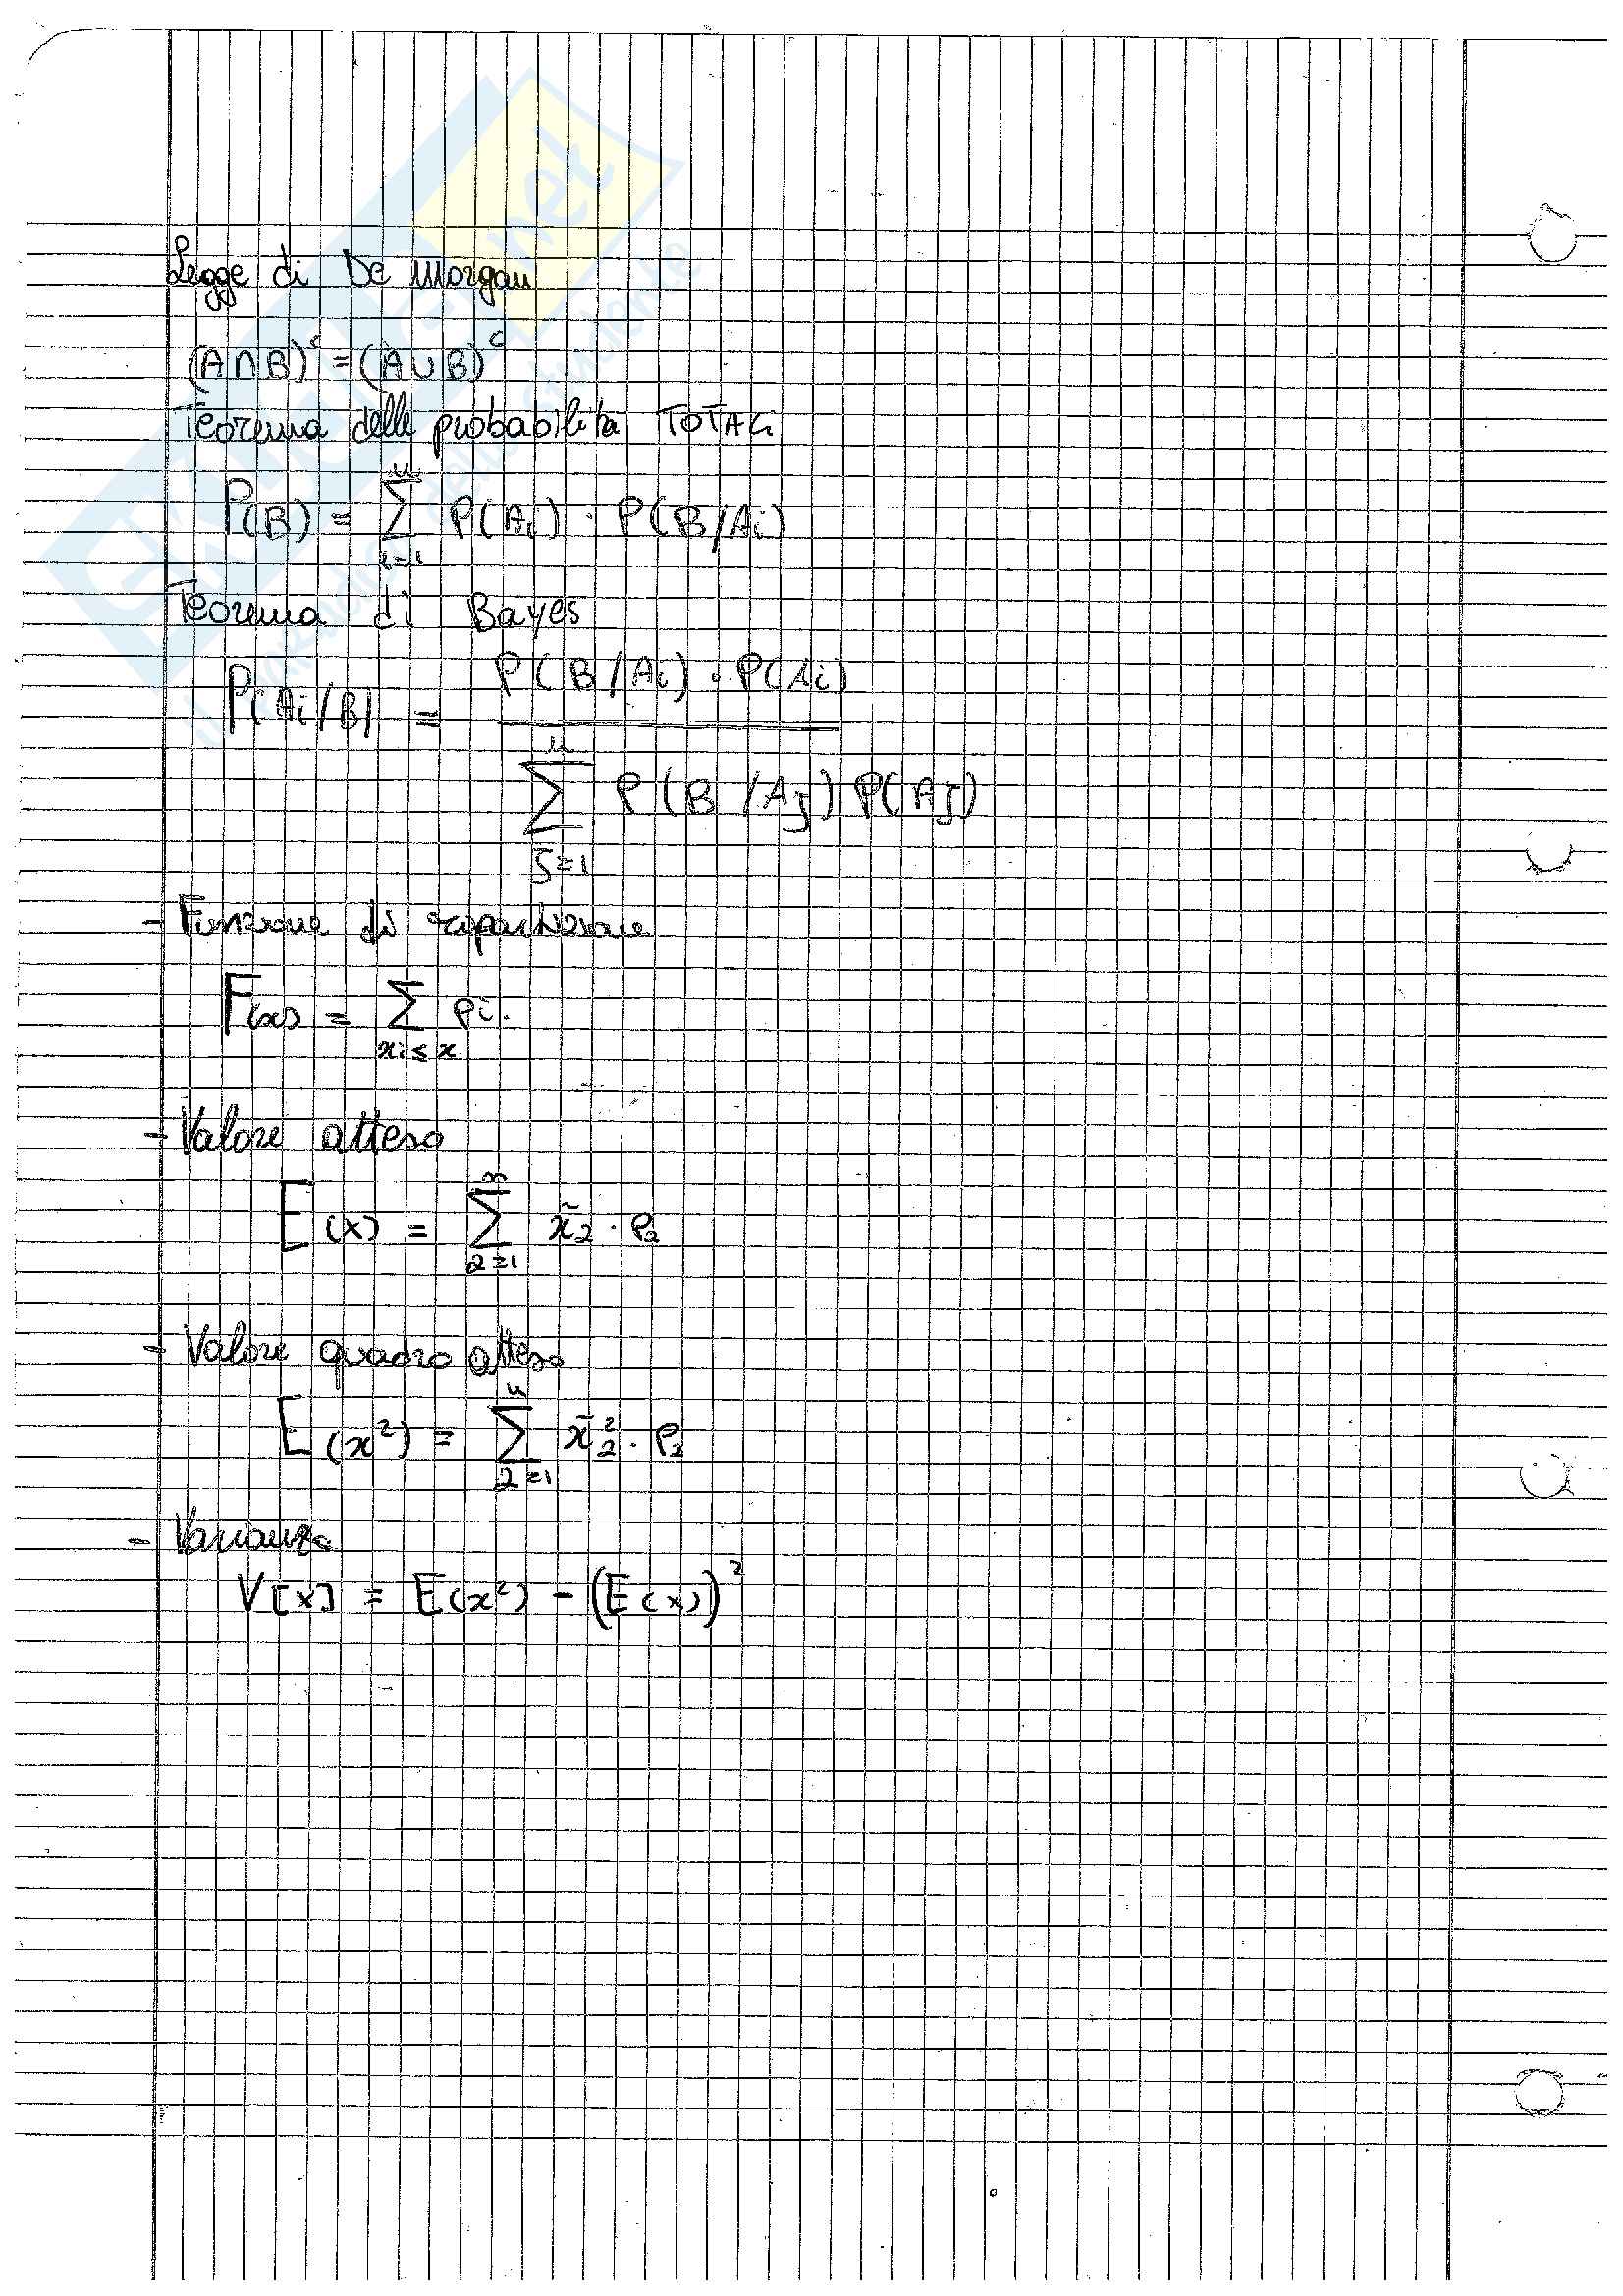 Legge di De Morgan
(A∩B)ᶜ = (A∪B)ᶜ
Teorema delle probabilità TOTALI
P(B) = Σ_{i=1}^{n} P(Ai) · P(B/Ai)
Teorema di Bayes
P(Ai/B) = P(B/Ai) · P(Ai)
Σ_{J=1}^{n} P(B/AJ) P(AJ)
- Funzione di ripartizione
F(x) = Σ_{xi≤x} pi
- Valore atteso
E(x) = Σ_{2=1}^{n} x̄₂ · P₂
- Valore quadro atteso
E(x²) = Σ_{2=1}^{n} x̄₂² · P₂
- Varianza
V[x] = E(x²) - (E(x))²